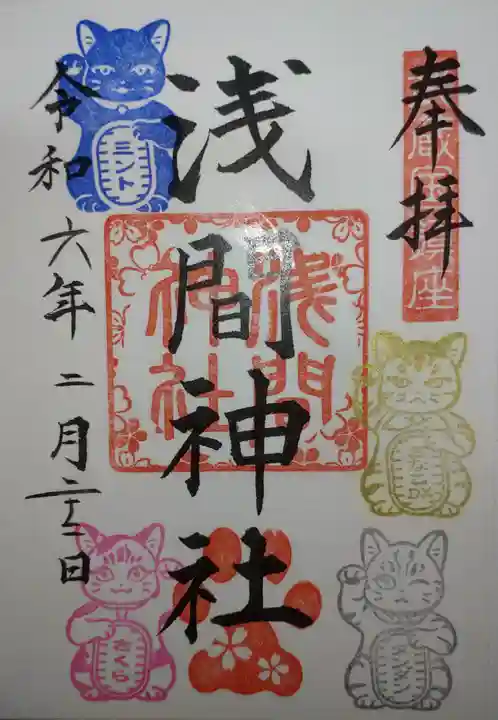 奉拝
浅間神社
浅間神社
令和六年二月二十二日
ミント
さくら